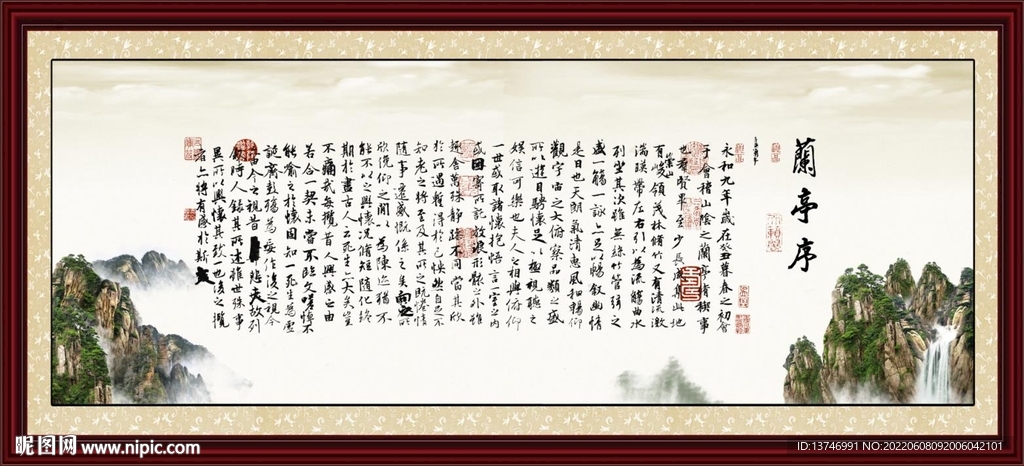 蘭亭序
永和九年歲在癸丑暮春之初會
于會稽山陰之蘭亭脩稧事
也羣賢畢至少長咸集此地
有崇山峻領茂林脩竹又有清流激
湍暎帶左右引以為流觴曲水
列坐其次雖無絲竹管弦之
盛一觴一詠亦足以暢敘幽情
是日也天朗氣清惠風和暢仰
觀宇宙之大俯察品類之盛
所以遊目騁懷足以極視聽之
娛信可樂也夫人之相與俯仰
一世或取諸懷抱悟言一室之內
或因寄所託放浪形骸之外雖
趣舍萬殊靜躁不同當其欣
於所遇暫得於己怏然自足不
知老之將至及其所之既惓情
隨事遷感慨係之矣向之所
欣俛仰之閒以為陳迹猶不
能不以之興懷況脩短隨化終
期於盡古人云死生亦大矣豈
不痛哉每攬昔人興感之由
若合一契未嘗不臨文嗟悼不
能喻之於懷固知一死生為虛
誕齊彭殤為妄作後之視今
亦由今之視昔悲夫故列
敘時人錄其所述雖世殊事
異所以興懷其致一也後之攬
者亦將有感於斯文
昵图网 www.nipic.com
ID:13746991 NO:20220608092006042101